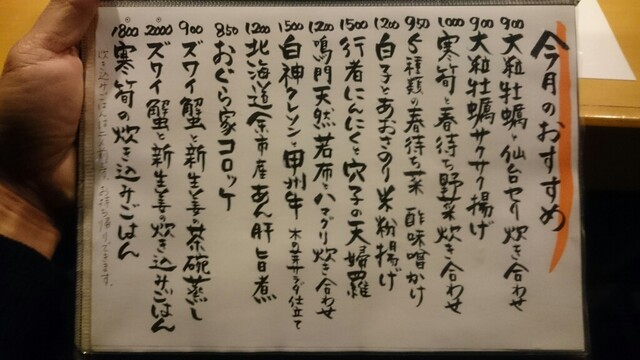 今月のおすすめ
900 大粒牡蠣と仙台セリ炊き合わせ
900 大粒牡蠣サクサク揚げ
1000 寒筍と春待ち野菜炊き合わせ
950 5種類の春待ち菜 酢味噌かけ
1200 白子とあおさのり米粉揚げ
1500 行者にんにくと穴子の天婦羅
1200 鳴門天然若布とハマグリ炊き合わせ
1500 白神クレソンと甲州牛 木の芽サラダ仕立て
1200 北海道余市産あん肝旨煮
850 おぐら家コロッケ
900 ズワイ蟹と新生姜の茶碗蒸し
2000 ズワイ蟹と新生姜の炊き込みごはん
1800 寒筍の炊き込みごはん
炊き込みごはんは お持ち帰りできます。